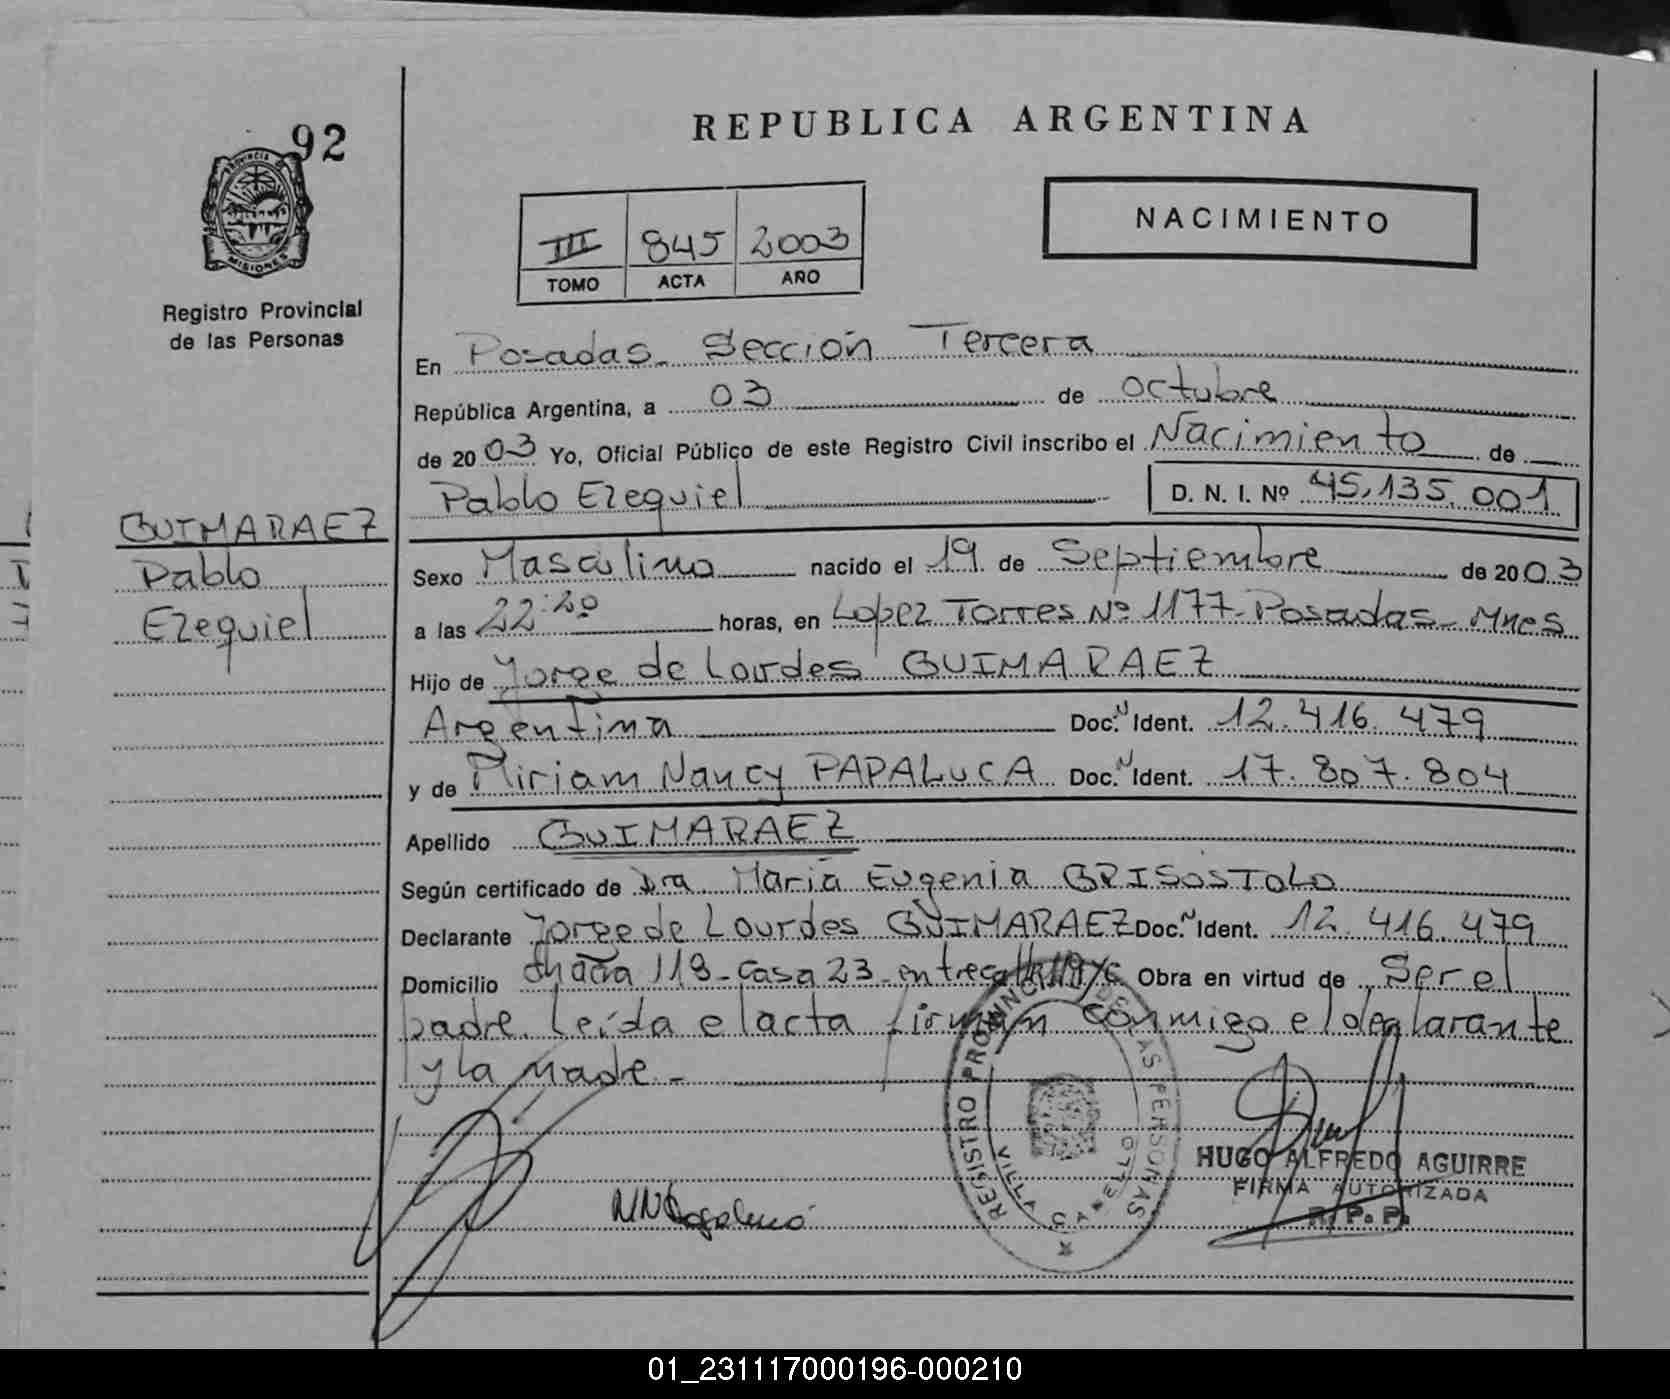 92
REPUBLICA ARGENTINA
PROVINCIA DE
MISIONES
Registro Provincial
de las Personas
III 845 2003
TOMO ACTA AÑO
NACIMIENTO
En Posadas - Sección Tercera
República Argentina, a 03 de octubre
de 2003 Yo, Oficial Público de este Registro Civil inscribo el Nacimiento de
Pablo Ezequiel D. N. I. Nº 45.135.001
GUIMARAEZ
Pablo
Ezequiel
Sexo Masculino nacido el 19 de Septiembre de 2003
a las 22:20 horas, en Lopez Torres Nº 1177 - Posadas - Mnes
Hijo de Jorge de Lourdes GUIMARAEZ
Argentina Doc. Ident. 12.416.479
y de Miriam Nancy PAPALUCA Doc. Ident. 17.807.804
Apellido GUIMARAEZ
Según certificado de Dra. María Eugenia GRISOSTOLO
Declarante Jorge de Lourdes GUIMARAEZ Doc. Ident. 12.416.479
Domicilio Chacra 118 - Casa 23 - entre Obra en virtud de Ser el
padre. Leída el acta firman conmigo el declarante
y la madre -
REGISTRO PROVINCIAL DE LAS PERSONAS
VILLA CABELLO
HUGO ALFREDO AGUIRRE
FIRMA AUTORIZADA
R. P. P.
01_231117000196-000210